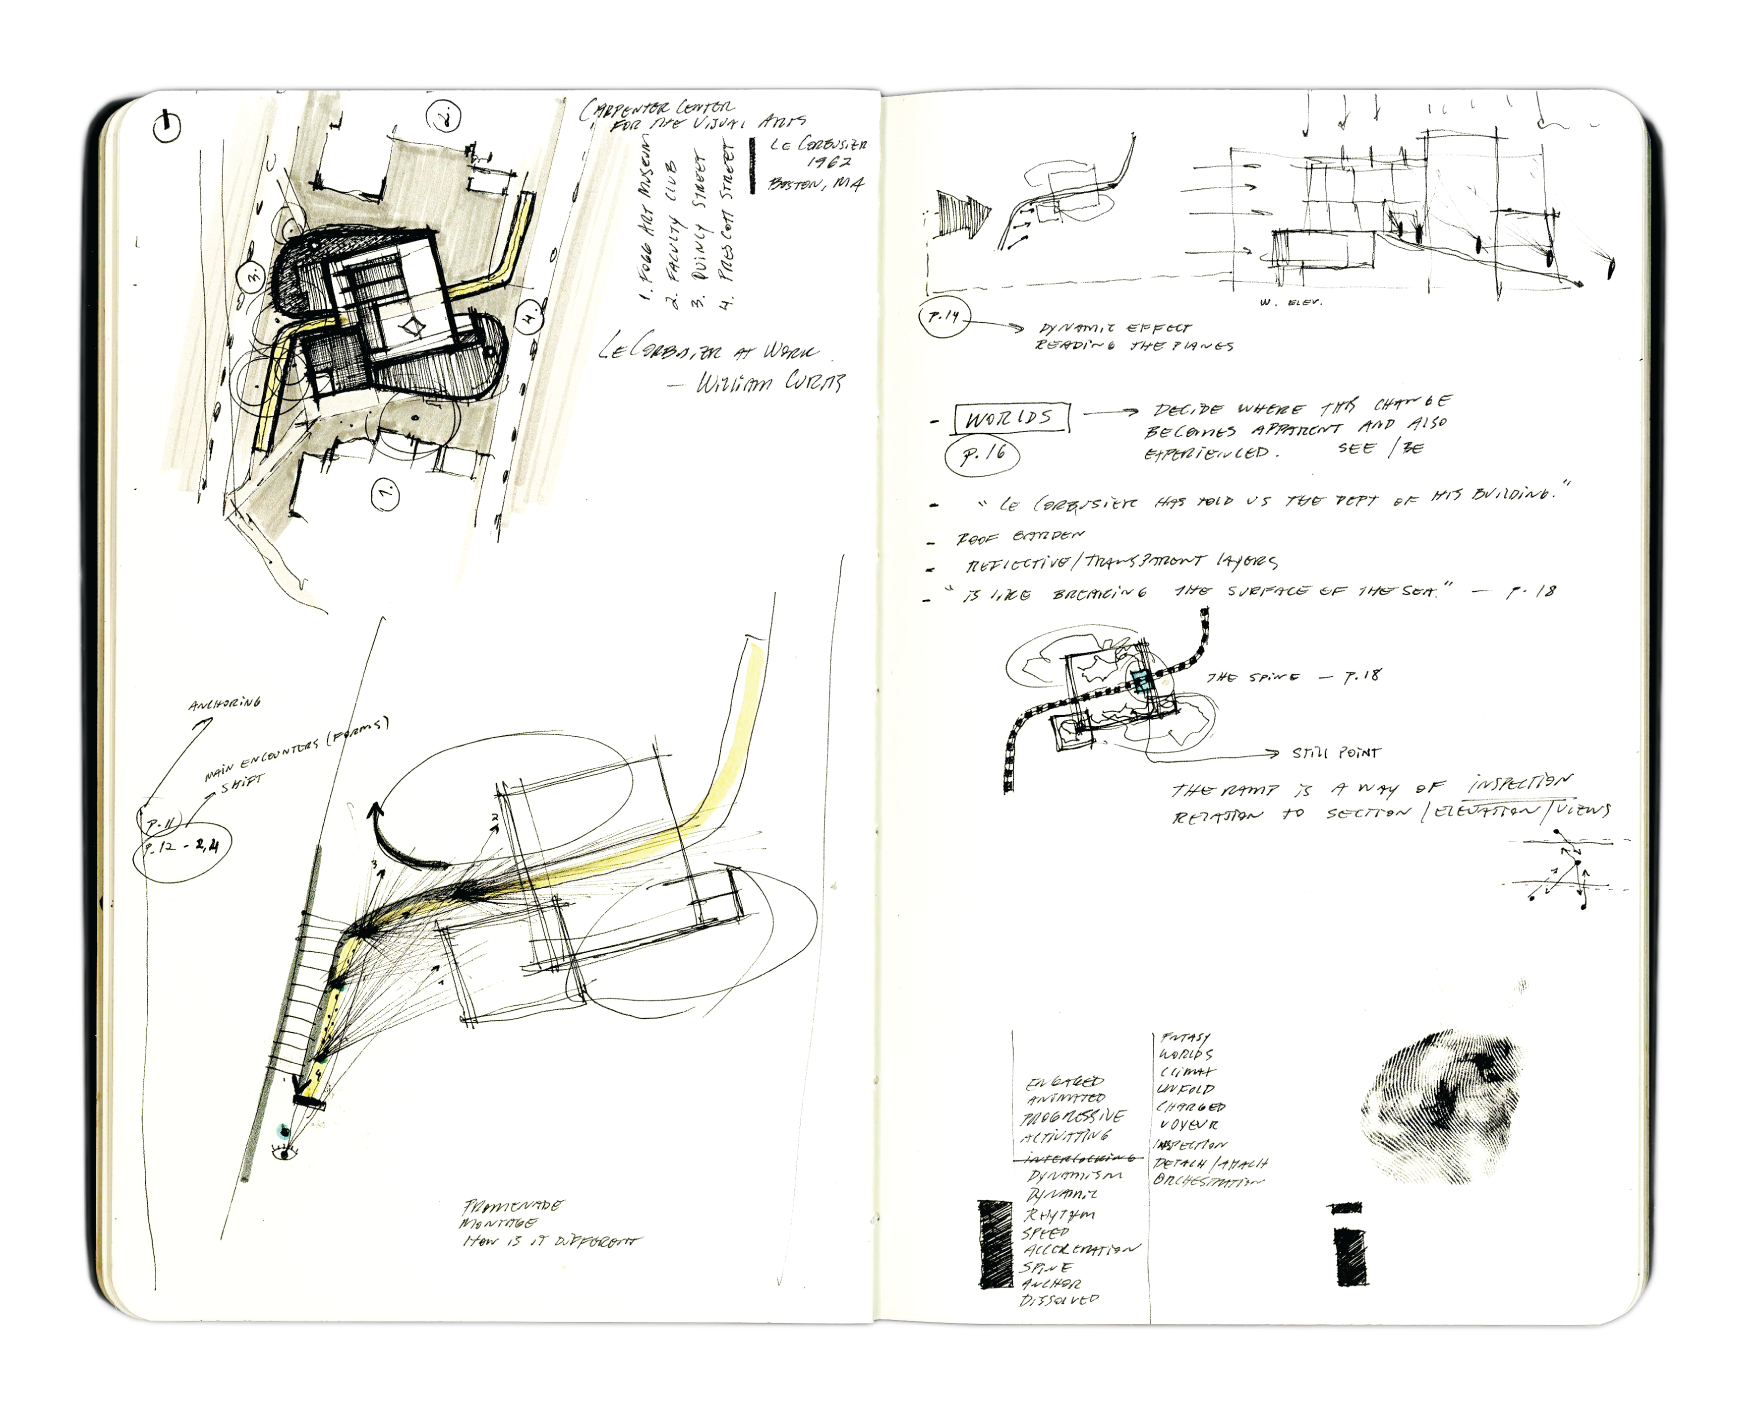 1
2.
3.
4.
1.
CARPENTER CENTER
FOR THE VISUAL ARTS
LE CORBUSIER
1962
BOSTON, MA
1. FOGG ART MUSEUM
2. FACULTY CLUB
3. QUINLY STREET
4. PRESCOTT STREET
LE CORBUSIER AT WORK
— WILLIAM CURTIS
ANCHORING
MAIN ENCOUNTERS (FORMS)
SHIFT
P.11
P.12 - 2,4
2
3
1
4
PROMENADE
MONTAGE
HOW IS IT DIFFERENT
W. ELEV.
P.14
DYNAMIC EFFECT
READING THE PLANES
- WORLDS
P.16
DECIDE WHERE THIS CHANGE
BECOMES APPARENT AND ALSO
EXPERIENCED. SEE / BE
- "LE CORBUSIER HAS TOLD US THE DEPT OF HIS BUILDING."
- ROOF GARDEN
- REFLECTIVE/TRANSPARENT LAYERS
- "IS LIKE BREAKING THE SURFACE OF THE SEA." — P.18
THE SPINE — P.18
STILL POINT
THE RAMP IS A WAY OF INSPECTION
RELATION TO SECTION / ELEVATION / VIEWS
ENGAGED
ANIMATED
PROGRESSIVE
ACTIVATING
INTERLOCKING
DYNAMISM
DYNAMIC
RHYTHM
SPEED
ACCELERATION
SPINE
ANCHOR
DISSOLVED
FNTASY
WORLDS
CLIMAX
UNFOLD
CHARGED
VOYEUR
INSPECTION
DETACH / ATTACH
ORCHESTRATION